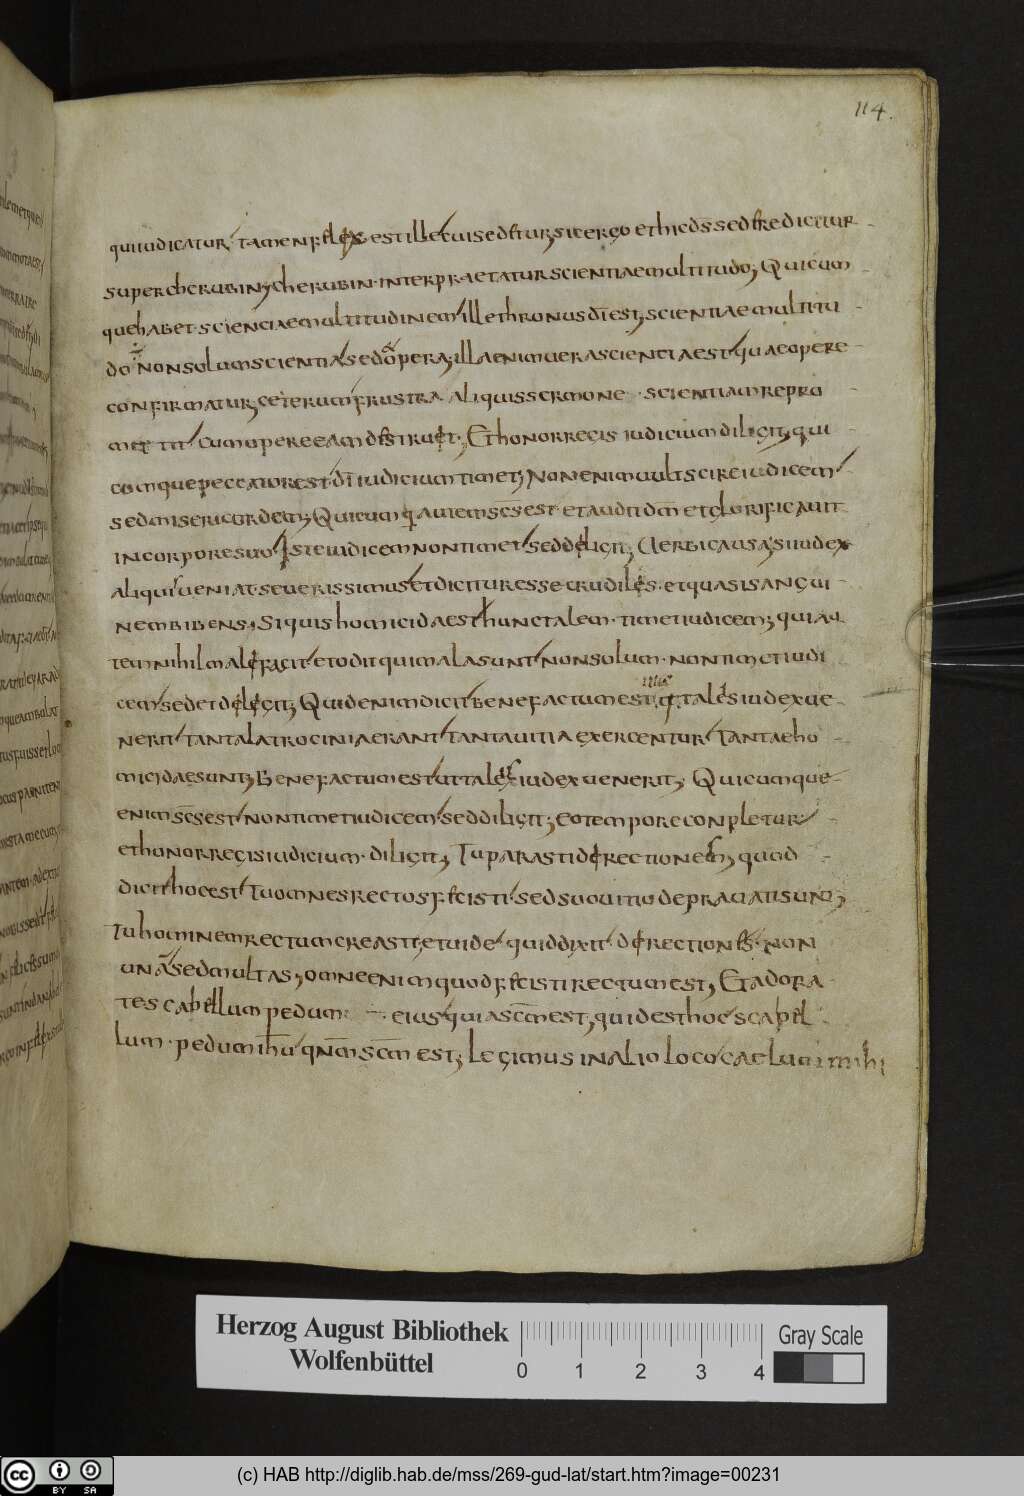 114.
qui iudicatur tamen felix est ille cui sedetur; sic ergo et hic ds sedere dicitur
super cherubin; cherubin interpraetatur scientiae multitudo; Quicum
que habet scienciae multitudinem ille thronus di est; scientiae multitu
do non solum scientia sed opera; illa enim uera sciencia est quae opere
confirmatur; ceterum frustra aliquis sermone scientiam repro
mittit cum opere eam destruat; Et honor regis iudicium diligit; qui
cumque peccator est di iudicium timet; Non enim uult scire iudicem
sed misericordem; Quicumq; autem scs est et audit dm et glorificauit
in corpore suo iste iudicem non timet sed diligit; Uerbi causa; si iudex
aliqui ueniat seuerissimus et dicitur esse crudiles et quasi sangui
nem bibens; Si quis homicida est hunc talem timet iudicem; qui au
tem nihil male facit et odit qui mala sunt non solum non timet iudi
cem sed et delegit; Quid enim dicit bene factum est q tales iudex ue
nerit tanta latrocinia erant tanta uitia exercentur tanta eho
micidae sunt; Bene factum est ut tales iudex uenerit; Quicumque
enim scs est non timet iudicem sed diligit; eo tempore conpletur
et honor regis iudicium diligit; Tu parasti derectionem; quod
dicit hoc est Tu omnes rectos fecisti sed suo uitio deprauati sunt;
Tu hominem rectum creasti; et uide quid dixit derectiones non
una sed multas; omne enim quod fecisti rectum est; Et adora
te scabellum pedum eius quia scm est; quid est hoc scabel
lum pedum ihu qnm scm est; Legimus in alio loco caelum mihi
Herzog August Bibliothek
Wolfenbüttel
0 1 2 3 4
Gray Scale
BY SA
(c) HAB http://diglib.hab.de/mss/269-gud-lat/start.htm?image=00231